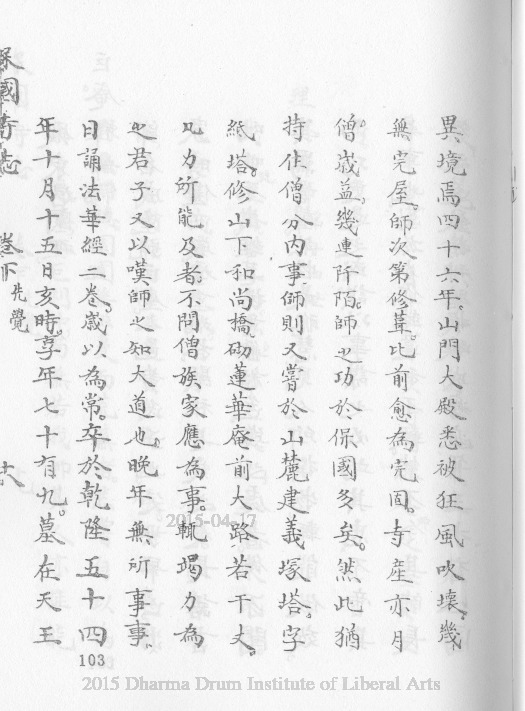 異境焉四十六年。山門大殿悉被狂風吹壞。幾
無完屋。師次第修葺。比前愈為完固。寺產亦月
僧歲益。幾連阡陌。師之功於保國多矣。然此猶
持住僧分內事。師則又嘗於山麓建義塚塔。字
紙塔。修山下和尚橋。砌蓮華庵前大路。若干丈。
凡力所能及者。不問僧族家應為事。輒竭力為
之君子又以嘆師之知大道也。晚年無所事事。
日誦法華經二卷。歲以為常。卒於乾隆五十四
年十月十五日亥時。享年七十有九。墓在天王
保國寺志 卷下 先覺 十八
103
2015-04-17
2015 Dharma Drum Institute of Liberal Arts